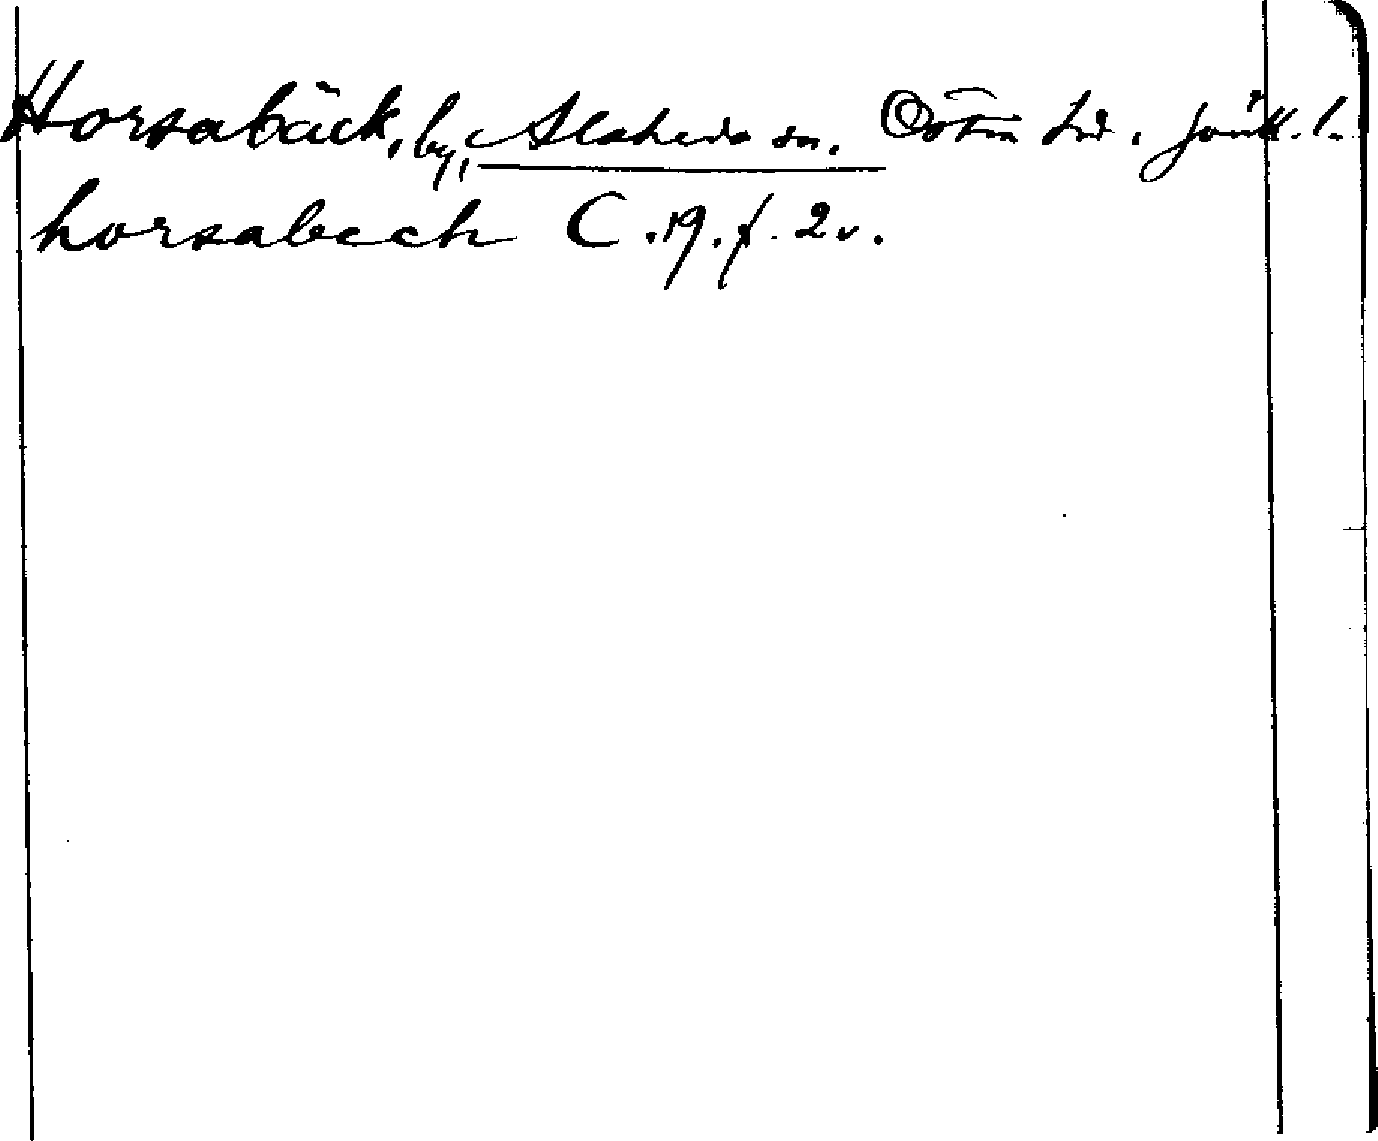 Horsabäck, by, Alsheda sn. Östra hd. Jönk. l.
horsabech C. 19. f. 2v.